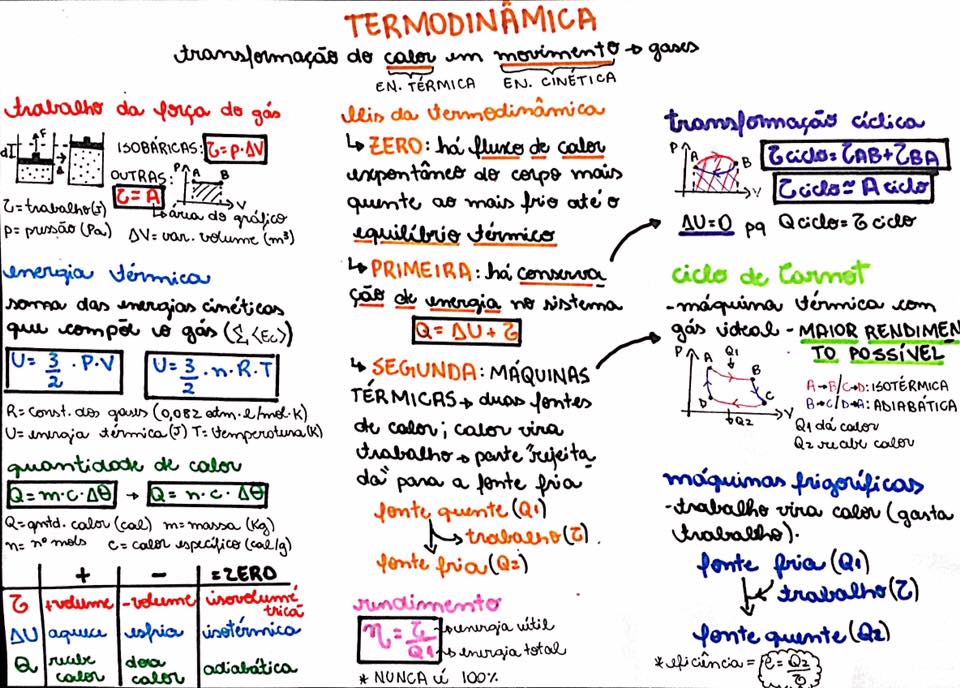 TERMODINÂMICA
transformação do calor em movimento → gases
EN. TÉRMICA EN. CINÉTICA
trabalho da força do gás
F
d
ISOBÁRICAS: τ=p.ΔV
OUTRAS: τ=A
P A B V
↳área do gráfico
τ=trabalho(J)
p=pressão(Pa) ΔV=var. volume(m³)
energia térmica
soma das energias cinéticas
que compõe o gás (Σ<Ec>)
U=3/2.P.V U=3/2.n.R.T
R=const. dos gases (0,082 atm.l/mol.K)
U=energia térmica(J) T=temperatura(K)
quantidade de calor
Q=m.c.Δθ → Q=n.c.Δθ
Q=qntd. calor(cal) m=massa(Kg)
n=nº mols c=calor específico(cal/g)
+ - =ZERO
τ +volume -volume isovolumétrica
ΔU aquece esfria isotérmica
Q recebe calor doa calor adiabática
leis da termodinâmica
↳ZERO: há fluxo de calor
expontâneo do corpo mais
quente ao mais frio até o
equilíbrio térmico
↳PRIMEIRA: há conserva
ção de energia no sistema
Q=ΔU+τ
↳SEGUNDA: MÁQUINAS
TÉRMICAS→ duas fontes
de calor; calor vira
trabalho→ parte "rejeita
da" para a fonte fria
fonte quente(Q1)
→trabalho(τ).
fonte fria(Q2)
rendimento
η=τ/Q1 →energia útil
→energia total
* NUNCA é 100%
transformação cíclica
P A B V
τciclo=τAB+τBA
τciclo≃A ciclo
ΔU=0 pq Qciclo=τciclo
ciclo de Carnot
-máquina térmica com
gás ideal - MAIOR RENDIMEN
TO POSSÍVEL
P A Q1 B C D Q2 V
A→B/C→D:ISOTÉRMICA
B→C/D→A:ADIABÁTICA
Q1 dá calor
Q2 recebe calor
máquinas frigoríficas
-trabalho vira calor (gasta
trabalho).
fonte fria(Q1)
trabalho(τ)
fonte quente(Q2)
*eficiência= e=Q2/τ